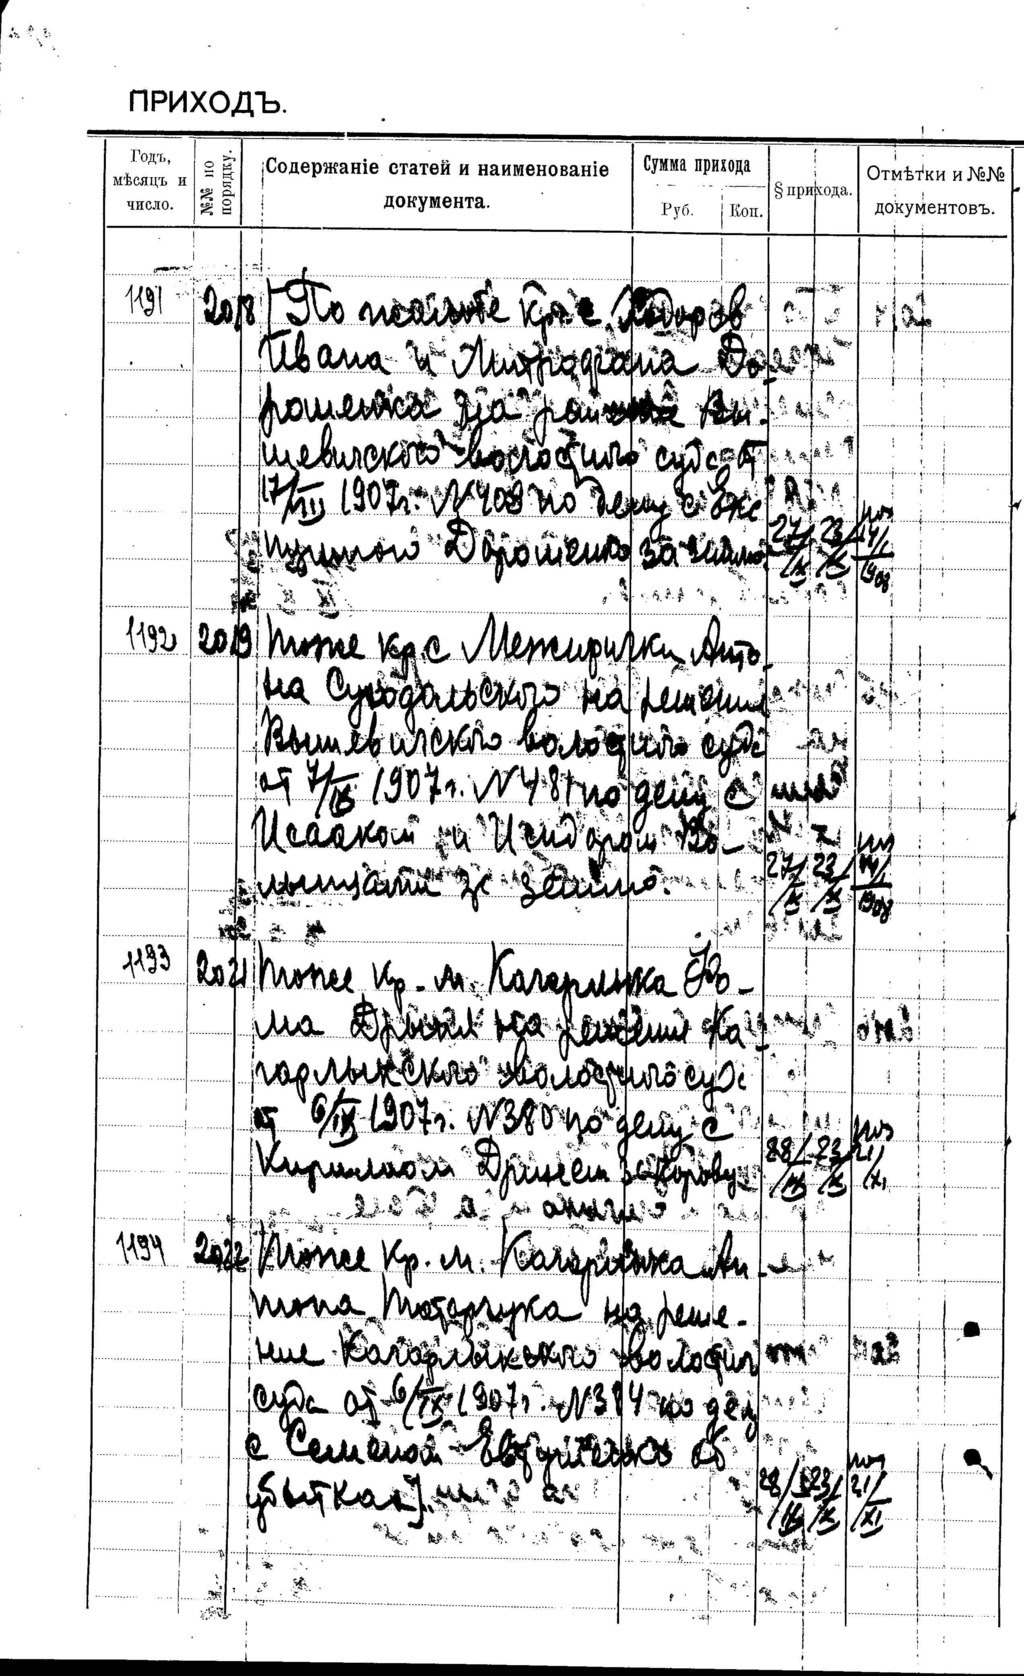 ПРИХОДЪ.
Годъ, мѣсяцъ и число.
№№ по порядку.
Содержаніе статей и наименованіе документа.
Сумма прихода
Руб.
Коп.
§ прихода.
Отмѣтки и №№ документовъ.
1191 2018 [По жалобе кр. с.
Ивана и Митрофана До-
рошенка на решение Вы-
шевичского волостного суда от
17/VII 1907г. N 409 по делу с
Дорошенко за землю 27/IX 23/X 14/I 1908
1192 2019 Тоже кр. с. Межирички Анто-
на Суходольского на решение
Вышевичского волостного суда
от 7/IX 1907г. N 481 по делу с
Исааком и Исидором Во-
лынцами за землю. 27/IX 23/X 14/I 1908
1193 2021 Тоже кр. м. Кагарлыка Фо-
ма на решение Ка-
гарлыкского волостного суда
от 6/IX 1907г. N 380 по делу с
Кириллом за корову 28/IX 23/X 21/XI
1194 2022 Тоже кр. м. Кагарлыка Ан-
тона на реше-
ние Кагарлыкского волостн
суда от 6/IX 1907г. N 384 по делу
с Семеном об
убытках]. 28/IX 23/X 21/XI